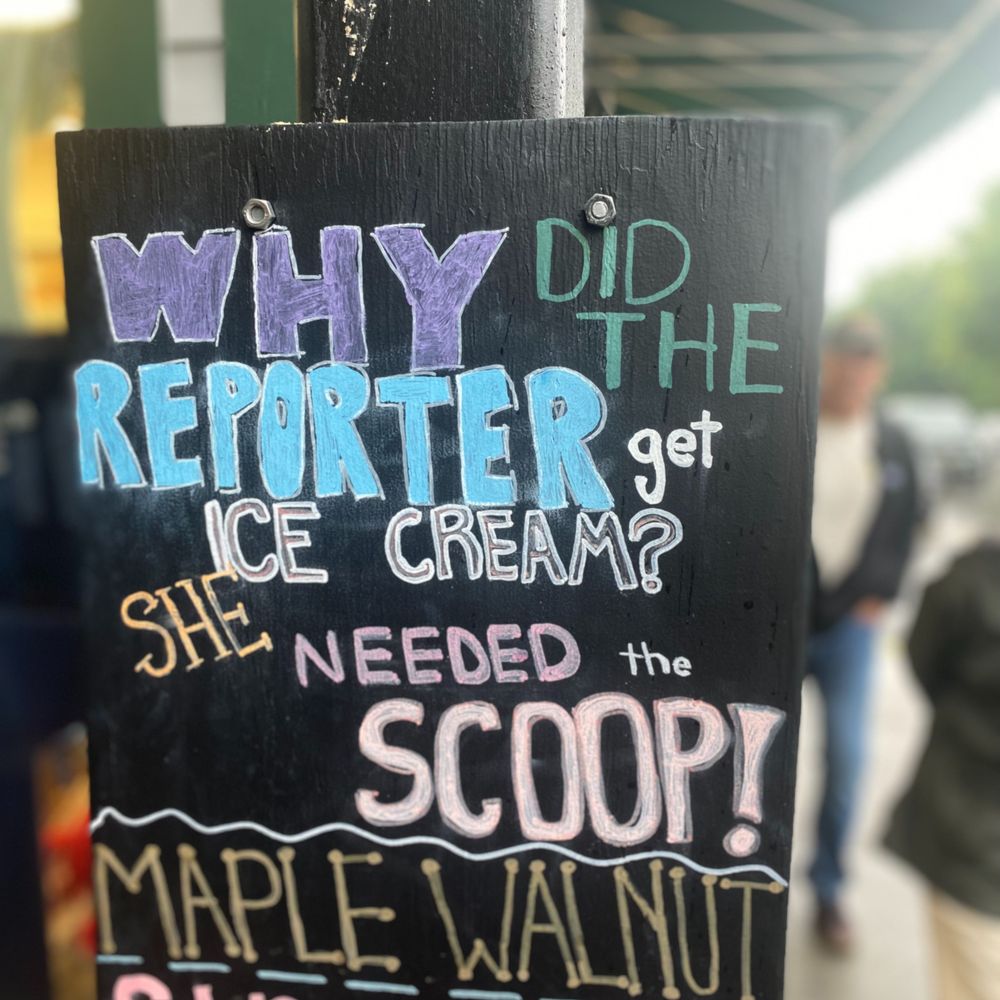 WHY DID
THE
REPORTER get
ICE CREAM?
SHE NEEDED the
SCOOP!
MAPLE WALNUT